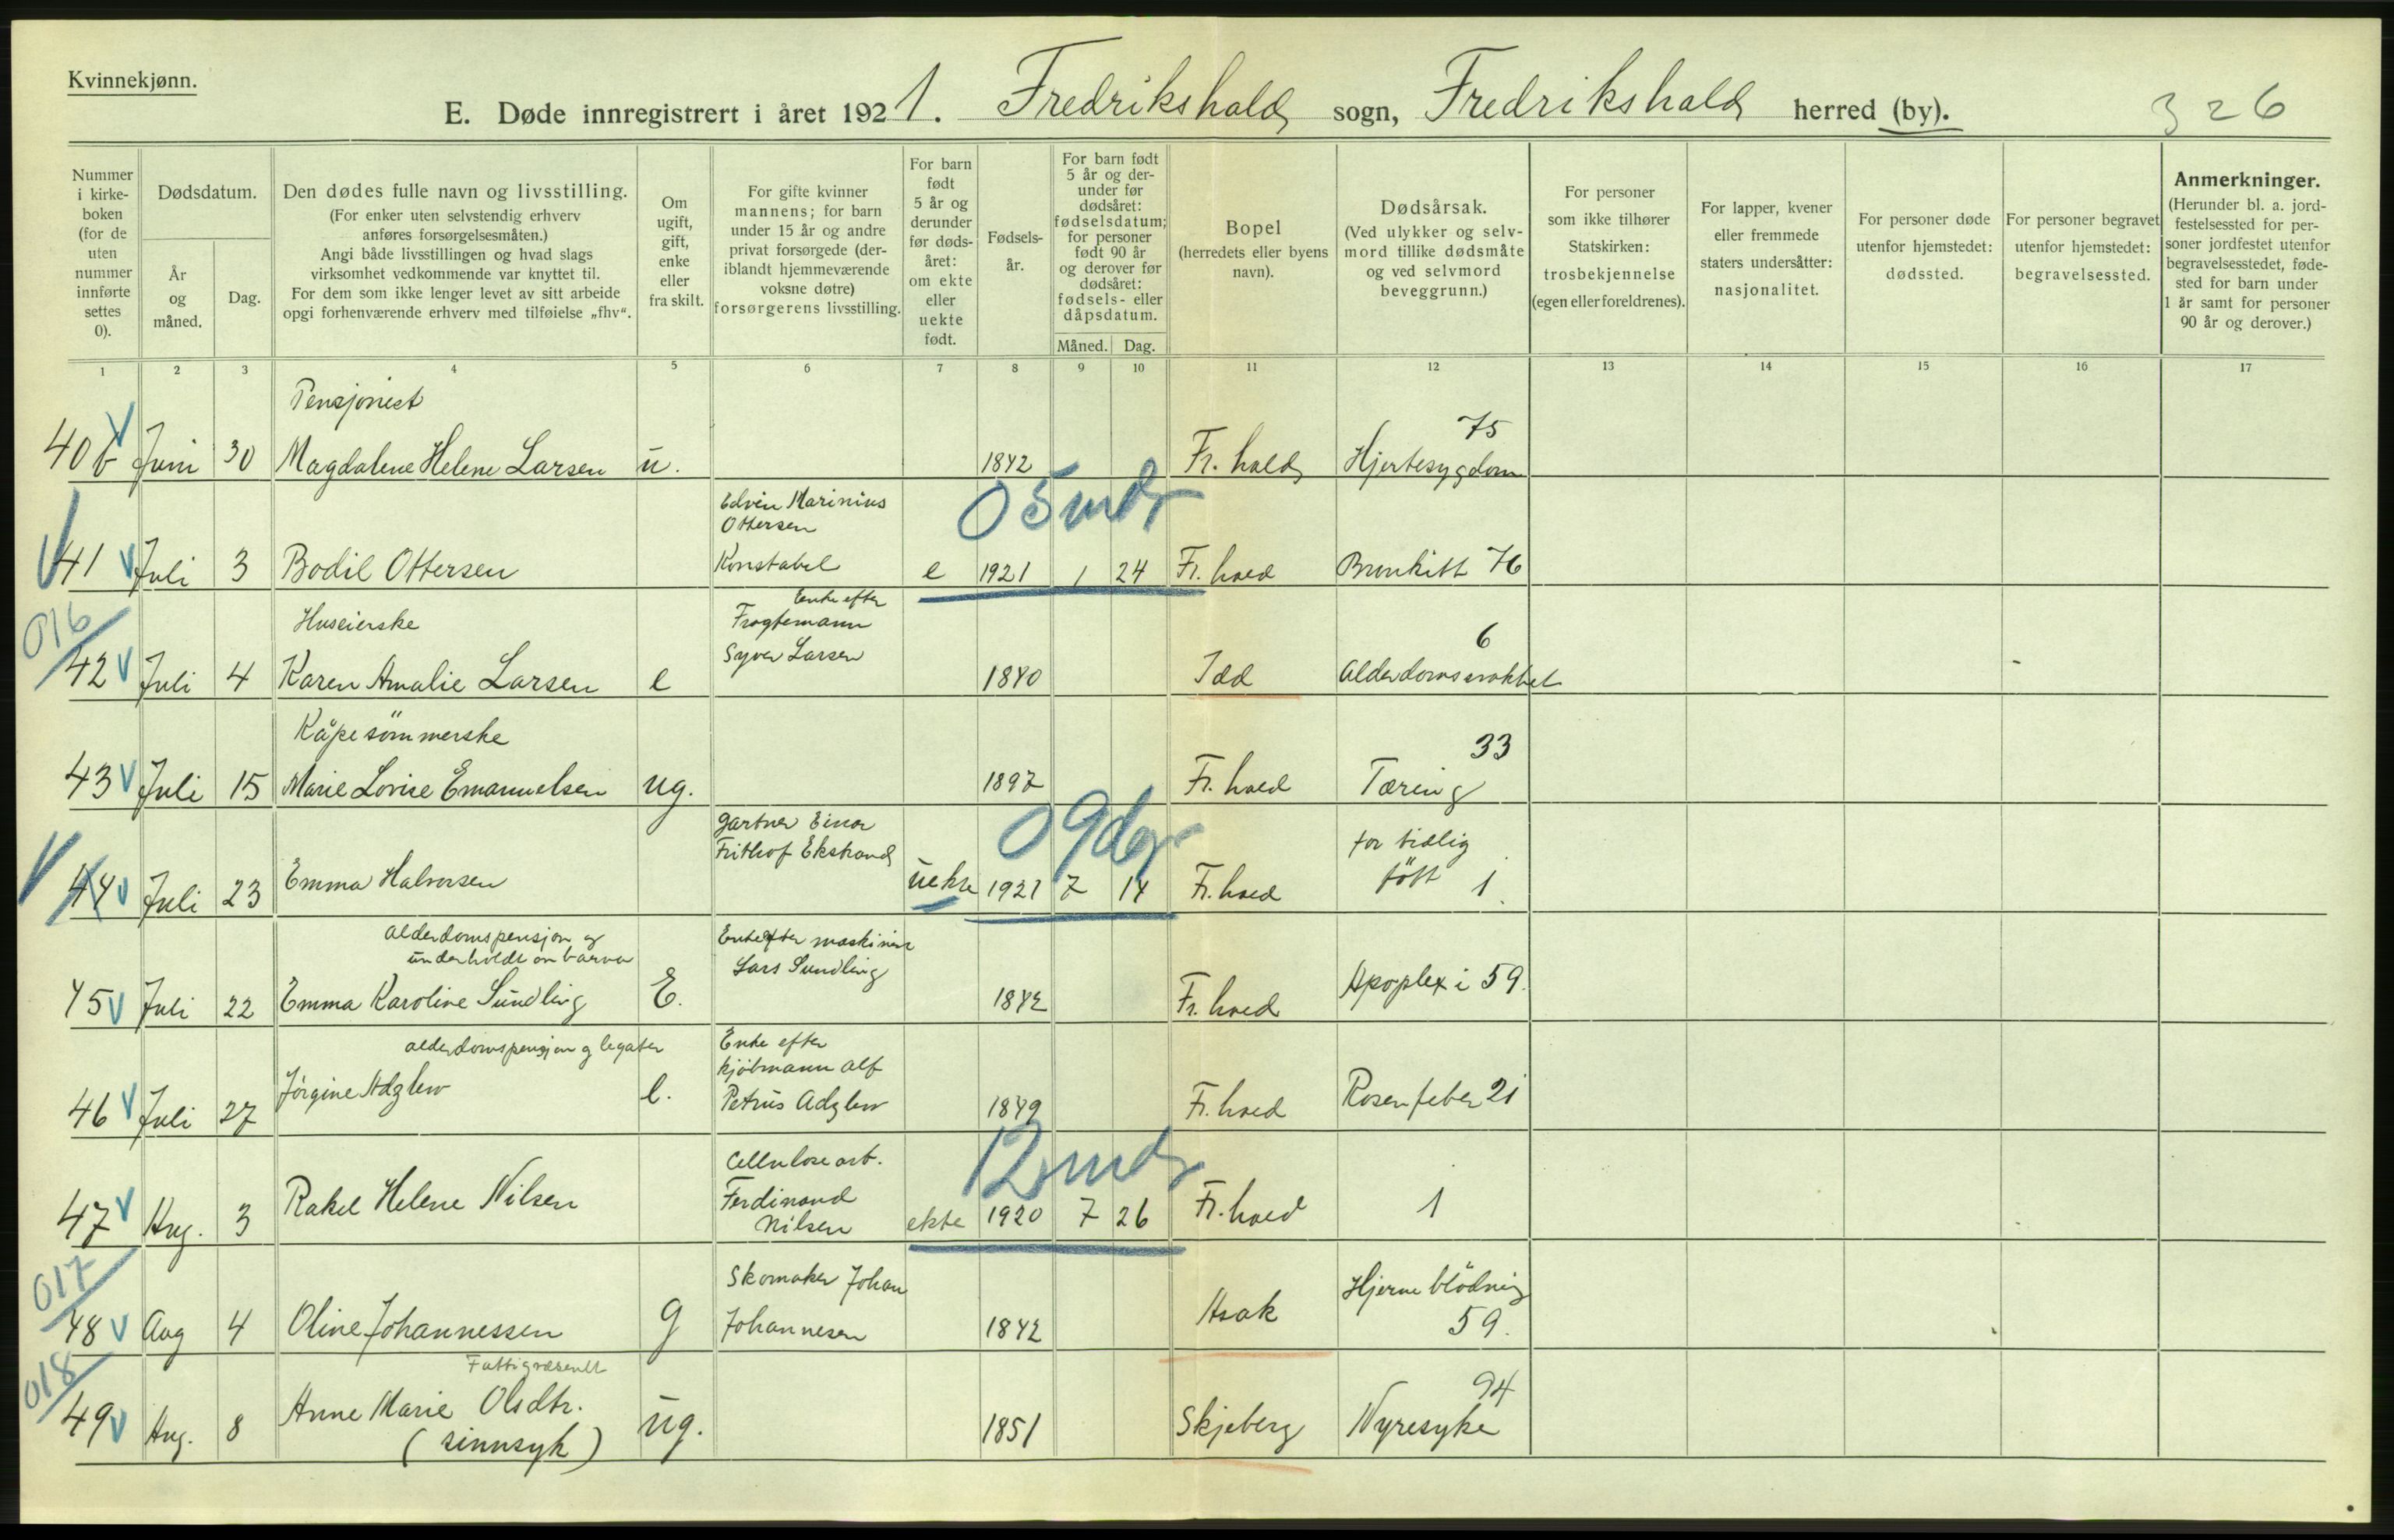 Kvinnekjønn.
E. Døde innregistrert i året 1921. Fredrikshald sogn, Fredrikshald herred (by). 326
Nummer i kirke-boken (for de uten nummer innførte settes 0).
Dødsdatum.
År og måned.
Dag.
Den dødes fulle navn og livsstilling.
(For enker uten selvstendig erhverv
anføres forsørgelsesmåten.)
Angi både livsstillingen og hvad slags
virksomhet vedkommende var knyttet til.
For dem som ikke lenger levet av sitt arbeide
opgi forhenværende erhverv med tilføielse „fhv“.
Om ugift, gift, enke eller fra skilt.
For gifte kvinner
mannens; for barn
under 15 år og andre
privat forsørgede (der-
iblandt hjemmeværende
voksne døtre)
forsørgerens livsstilling.
For barn født 5 år og derunder før døds-året: om ekte eller uekte født.
Fødsels-år.
For barn født
5 år og der-
under før
dødsåret:
fødselsdatum;
for personer
født 90 år
og derover før
dødsåret:
fødsels- eller
dåpsdatum.
Måned. Dag.
Bopel
(herredets eller byens
navn).
Dødsårsak.
(Ved ulykker og selv-
mord tillike dødsmåte
og ved selvmord
beveggrunn.)
For personer
som ikke tilhører
Statskirken:
trosbekjennelse
(egen eller foreldrenes).
For lapper, kvener
eller fremmede
staters undersåtter:
nasjonalitet.
For personer døde
utenfor hjemstedet:
dødssted.
For personer begravet
utenfor hjemstedet:
begravelsessted.
Anmerkninger.
(Herunder bl. a. jord-
festelsessted for per-
soner jordfestet utenfor
begravelsesstedet, føde-
sted for barn under
1 år samt for personer
90 år og derover.)
1 2 3 4 5 6 7 8 9 10 11 12 13 14 15 16 17
Pensjonist
75
40 b Juni 30 Magdalene Helene Larsen u. 1842 Fr. hald Hjertesygdom
Edvin Marinius
Ottersen
0 5 mdr
41 Juli 3 Bodil Ottersen Konstabel e 1921 1 24 Fr. hald Bronkitt 76
016
Enke efter
Huseierske Fragtemann
6
42 Juli 4 Karen Amalie Larsen e Syver Larsen 1840 Idd Alderdomssvakhet
Kåpesömmerske
33
43 Juli 15 Marie Lovise Emanuelsen ug. 1897 Fr. hald Tæring
Gartner Einar
Frithof Ekstrand
0 9 dgr
for tidlig
44 Juli 23 Emma Halvorsen uekte 1921 7 14 Fr. hald född 1
Alderdomspensjon og
underholdt av barna
Enke efter maskinist
Lars Sundling
45 Juli 22 Emma Karoline Sundling E. 1842 Fr. hald Apoplexi 59.
alderdomspensjon og legater
Enke efter
kjöbmann Alf
46 Juli 27 Jörgine Adzlew e. Petrus Adzlew 1849 Fr. hald Rosenfeber 21
Cellulosearb.
Ferdinand
12 mdr
47 Aug. 3 Rakel Helene Nilsen Nilsen ekte 1920 7 26 Fr. hald 1
017
Skomaker Johan
Hjerneblödning
48 Aug 4 Oline Johannessen g Johannesen 1842 Asak 59.
018
Fattigvesenet
94
49 Aug. 8 Anne Marie Olsdtr. ug. 1851 Skjeberg Nyresyke
(sinnsyk)